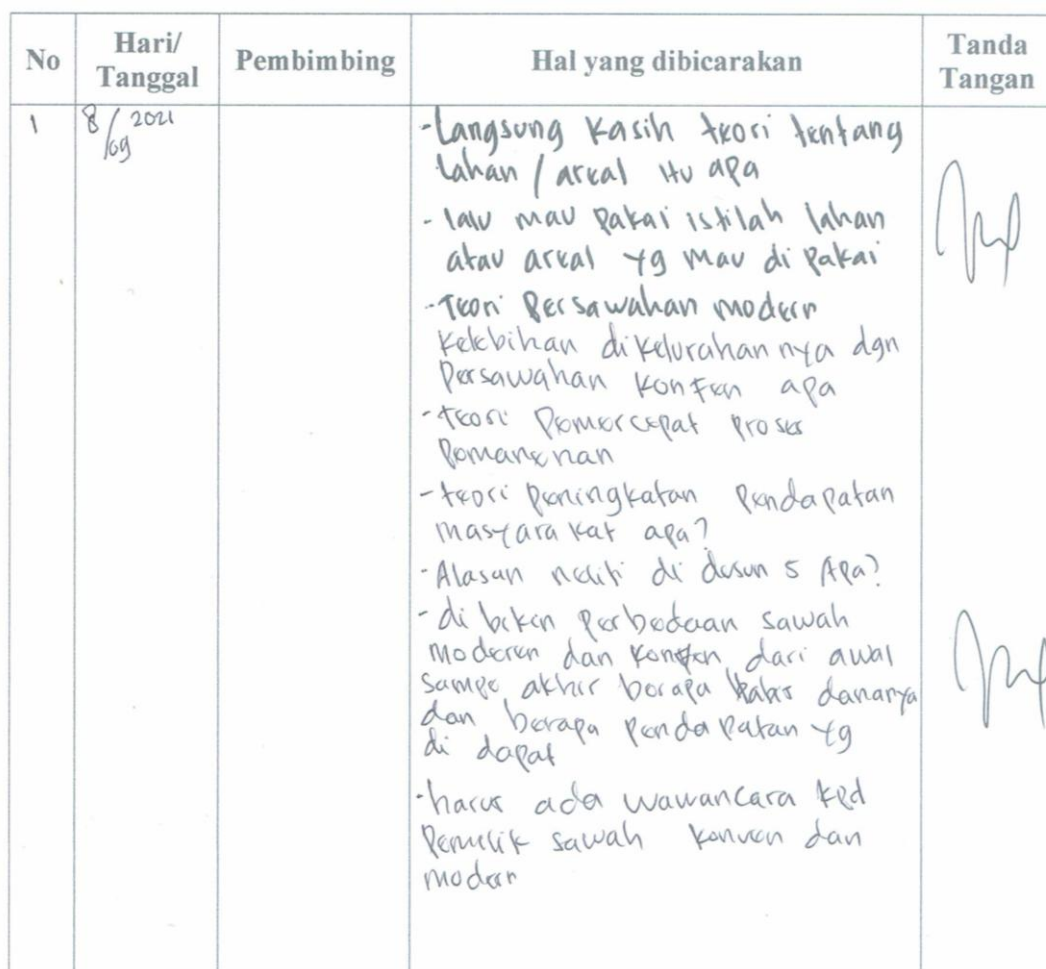 No
Hari/
Tanggal
Pembimbing
Hal yang dibicarakan
Tanda
Tangan
1
8/09 2021
-Langsung kasih teori tentang
Lahan / areal itu apa
- lalu mau pakai istilah lahan
atau areal yg mau di pakai
-Teori Persawahan modern
kelebihan dikelurahannya dgn
Persawahan konfen apa
-teori Pemercepat proses
Pemanenan
-teori peningkatan Pendapatan
masyarakat apa?
-Alasan neliti di dusun 5 Apa?
-di bikin Perbedaan sawah
moderen dan konfen dari awal
sampe akhir berapa habis dananya
dan berapa pendapatan yg
di dapat
-harus ada wawancara kpd
Pemilik sawah konven dan
modern